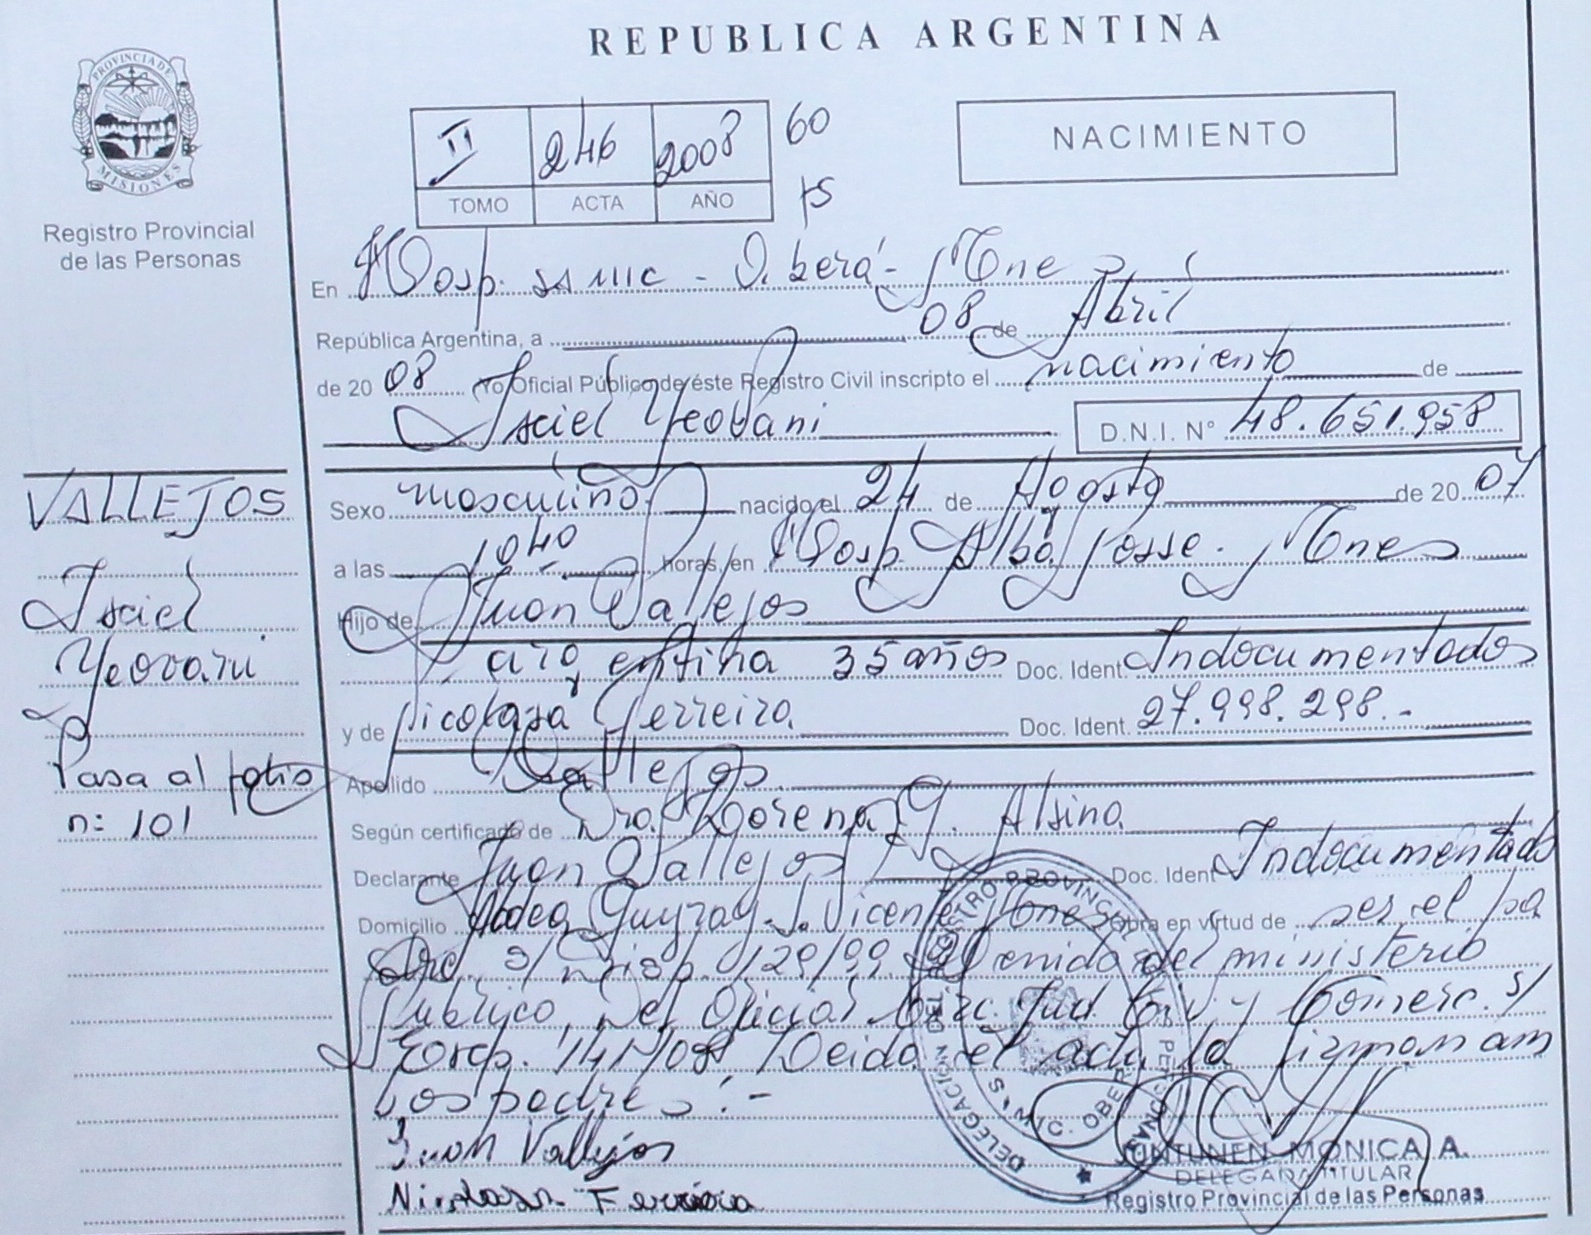 REPUBLICA ARGENTINA
PROVINCIA DE
MISIONES
Registro Provincial
de las Personas
II 246 2008 60
TOMO ACTA AÑO
NACIMIENTO
En Hosp. SAMIC - Oberá - Mnes
República Argentina, a 08 de Abril
de 20 08 Yo Oficial Público de éste Registro Civil inscripto el nacimiento de
Isciel Yeovani D.N.I. N° 48.651.958
VALLEJOS
Isciel
Yeovani
Pasa al folio
n: 101
Sexo masculino nacido el 24 de Agosto de 20 07
a las 1040 horas, en Hosp. Alba Posse. Mones
Hijo de Juan Vallejos
argentina 35 años Doc. Ident. Indocumentados
y de Nicolasa Ferreira. Doc. Ident. 27.998.298.-
Apellido Vallejos
Según certificado de Dra. Lorena G. Alsina
Declarante Juan Vallejos Doc. Ident Indocumentado
Domicilio Aldea Guyray - S. Vicente Mones Obra en virtud de ser el pa
dre. S/ Disp. 0129/99 venida del ministerio
Publico, del Oficial Circ. Jud. Civ. y Comerc. S/
Exp. 141/08 Leida el acta la firman am
bos padres.-
Juan Vallejos
Nicolasa Ferreira
DELEGACION DEL REGISTRO PROVINCIAL DE LAS PERSONAS
JUNTUNEN MONICA A.
DELEGADA TITULAR
Registro Provincial de las Personas